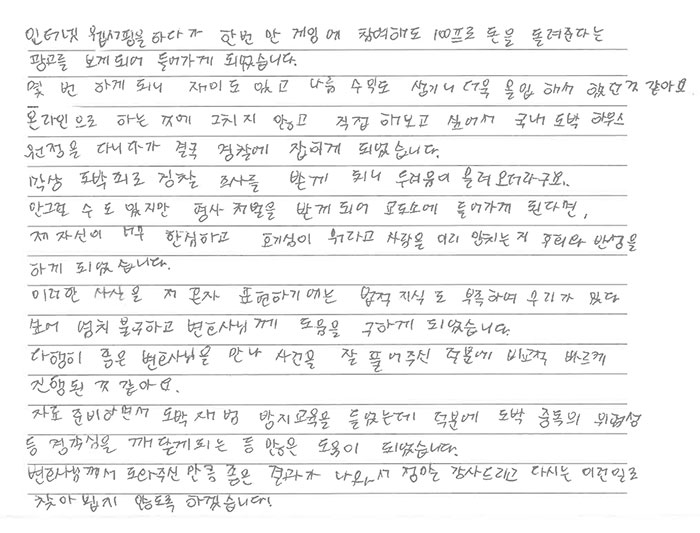 인터넷 웹서핑을 하다가 한번만 게임에 참여해도 100프로 돈을 돌려준다는
광고를 보게되어 들어가게 되었습니다.
몇 번 하게 되니 재미도 있고 나름 수익도 생기니 더욱 몰입해서 했던것 같아요
온라인으로 하는 것에 그치지 않고 직접 해보고 싶어서 국내 도박 하우스
원정을 다니다가 결국 경찰에 잡히게 되었습니다.
막상 도박죄로 경찰 조사를 받게 되니 두려움이 몰려오더라구요.
안그럴 수도 있지만 형사처벌을 받게되어 교도소에 들어가게 된다면,
제 자신이 너무 한심하고 호기심이 뭐라고 사람을 이리 망치는지 후회와 반성을
하게 되었습니다.
이러한 사실을 저 혼자 표현하기에는 법적지식도 부족하여 무리가 있다
보여 염치 불구하고 변호사님께 도움을 구하게 되었습니다.
다행히 좋은 변호사님을 만나 사건을 잘 풀어주신 덕분에 비교적 빠르게
진행된 것 같아요.
자료 준비하면서 도박 재범 방지교육을 들었는데 덕분에 도박 중독의 위험성
등 경각심을 깨닫게되는 등 많은 도움이 되었습니다.
변호사님께서 도와주신 만큼 좋은 결과가 나와서 정말 감사드리고 다시는 이런일로
찾아뵙지 않도록 하겠습니다!